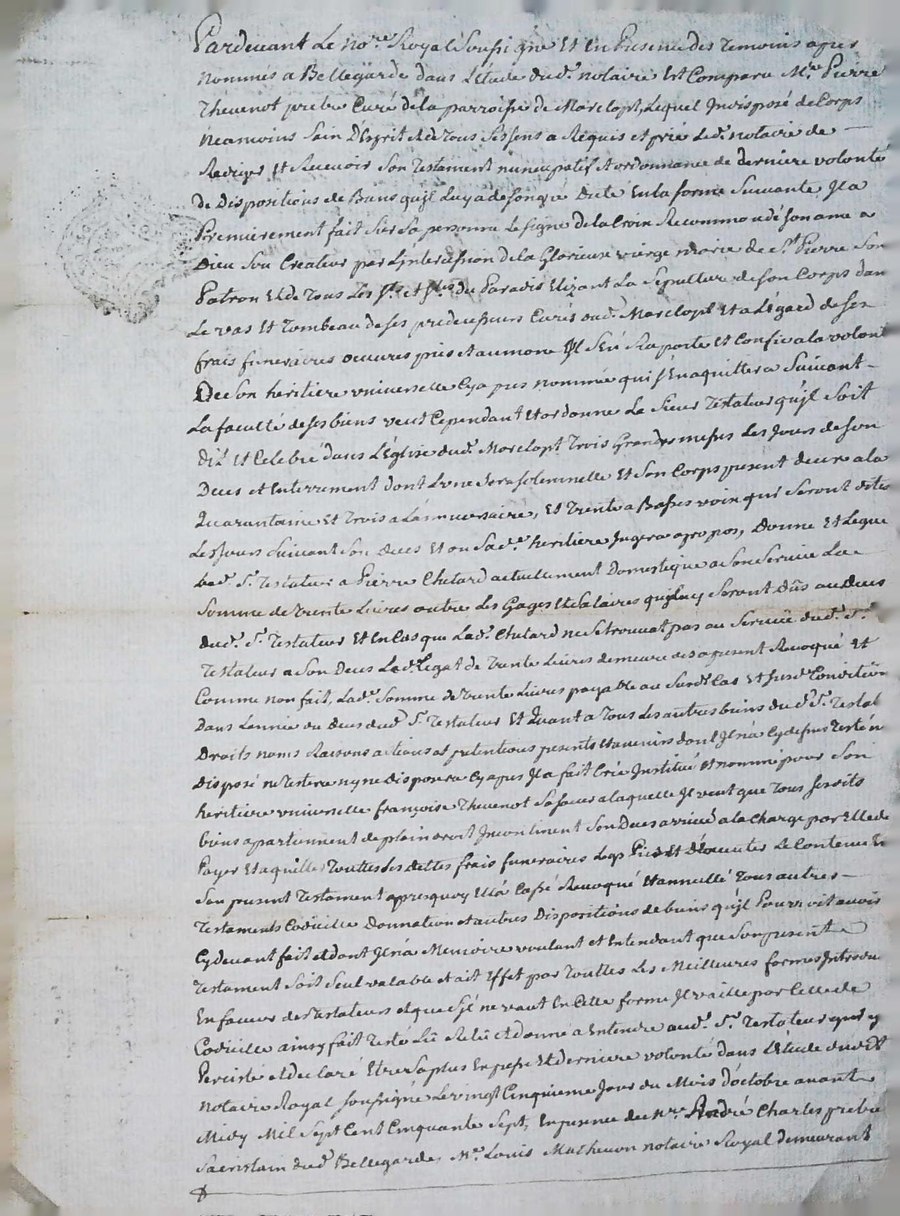 Pardevant Le No.re Royal Soussigné Et En Presence des temoins apres
nommés a Bellegarde dans L'étude dud. notaire Est Comparu M.re Pierre
Thevenot prebre Curé de la parroisse de Marclopt, Lequel Indisposé de Corps
neamoins Sain D'Esprit et de tous Ses sens a Requis et prié Led. notaire de
Rediger Et Recevoir Son Testament nuncupatif et ordonnance de derniere volonté
de Dispositions de Biens qu'jl luy a de Son gré Dicté En la forme Suivante Jl a
Premierement fait Sur Sa personne Le signe de la Croix Recommandé Son ame a
Dieu Son Createur par L'intercession de la Glorieuse vierge marie de S.t Pierre Son
Patron Et de Tous Les S.ts et S.tes du Paradis Elizant La Sepulture de Son Corps dan
Le vas Et Tombeau de ses predecesseurs Curés aud. Marclopt Et a L'égard de ses
frais funeraires oeuvres pies et aumone Jl S'En Raporte et Confie a la volont
De Son heritiere universelle Cy apres nommée qui s'En aquittera Suivant
La faculté de ses biens veut Cependant Et ordonne Le Sieur Testateur qu'jl Soit
Dit Et Celebré dans L'Eglise dud. Marclopt Trois Grandes messes Les Jours de Son
Deces et Enterrement dont L'une Sera Solemnelle Et Son Corps present autre a la
Quarantaine Et Trois a L'anniversaire, Et Trente a Basses voix qui Seront dites
Les Jours Suivant Son deces Et ou Sad. heritiere Jugera apropos, Donne Et Legue
Led. S.r Testateur a Pierre Chetard actuelement Domestique a Son Service La
Somme de Trente Livres outre Les Gages Et Salaires qui luy Seront Dûs au Deces
dud. S.r Testateur Et En Cas que Led. Chetard ne Se trouvat pas au Service dud. S.r
Testateur a Son Deces Led. Legat de Trente Livres demeure des apresent Revoqué Et
Comme non fait, Lad. Somme de Trente Livres payable au Susd. Cas Et Susd. Condition
Dans L'année du Deces dud. S.r Testateur Et Quant a Tous Les autres biens dud. S.r Testat
Droits noms Raisons actions et pretentions presents et avenirs dont Jl n'a Cy dessus Testé n
Disposé ne Testera ny ne Disposera Cy apres Jl a fait Créé Institué et nommé pour Son
heritiere universelle françoise Thevenot Sa soeur a laquelle Jl veut que Tous Sesdits
biens apartiennent de plein droit Incontinent Son Deces arrivé a la Charge par Elle de
Payer Et aquitter Touttes Ses dettes frais funeraires Legs Pies Et D'Executer Le Contenu En
Son present Testament apres quoy Jl a Cassé Revoqué Et annullé Tous autres
Testaments Codicille Donnation et autres Dispositions de biens qu'jl Pourroit avoir
Cy devant fait et dont Jl n'a Memoire voulant et Entendant que Son present
Testament Soit Seul valable et ait Effet par Touttes Les Meilleures formes Introdu
En faveur des Testateurs et que S'jl ne vaut En Cette forme Jl vaille par Celle de
Codicille ainsy fait Testé Lû Relû Et donné a Entendre aud. S.r Testateur qui y
Persiste et declaré Etre Sa plus Expresse Et derniere volonté dans L'Etude dudit
Notaire Royal soussigné Le vingt Cinquieme Jour du Mois d'octobre avant
Midy Mil Sept Cent Cinquante Sept, En presence de M.re André Charles prebre
Sacristain dud. Bellegarde, M.e Louis Mathevon notaire Royal demeurant